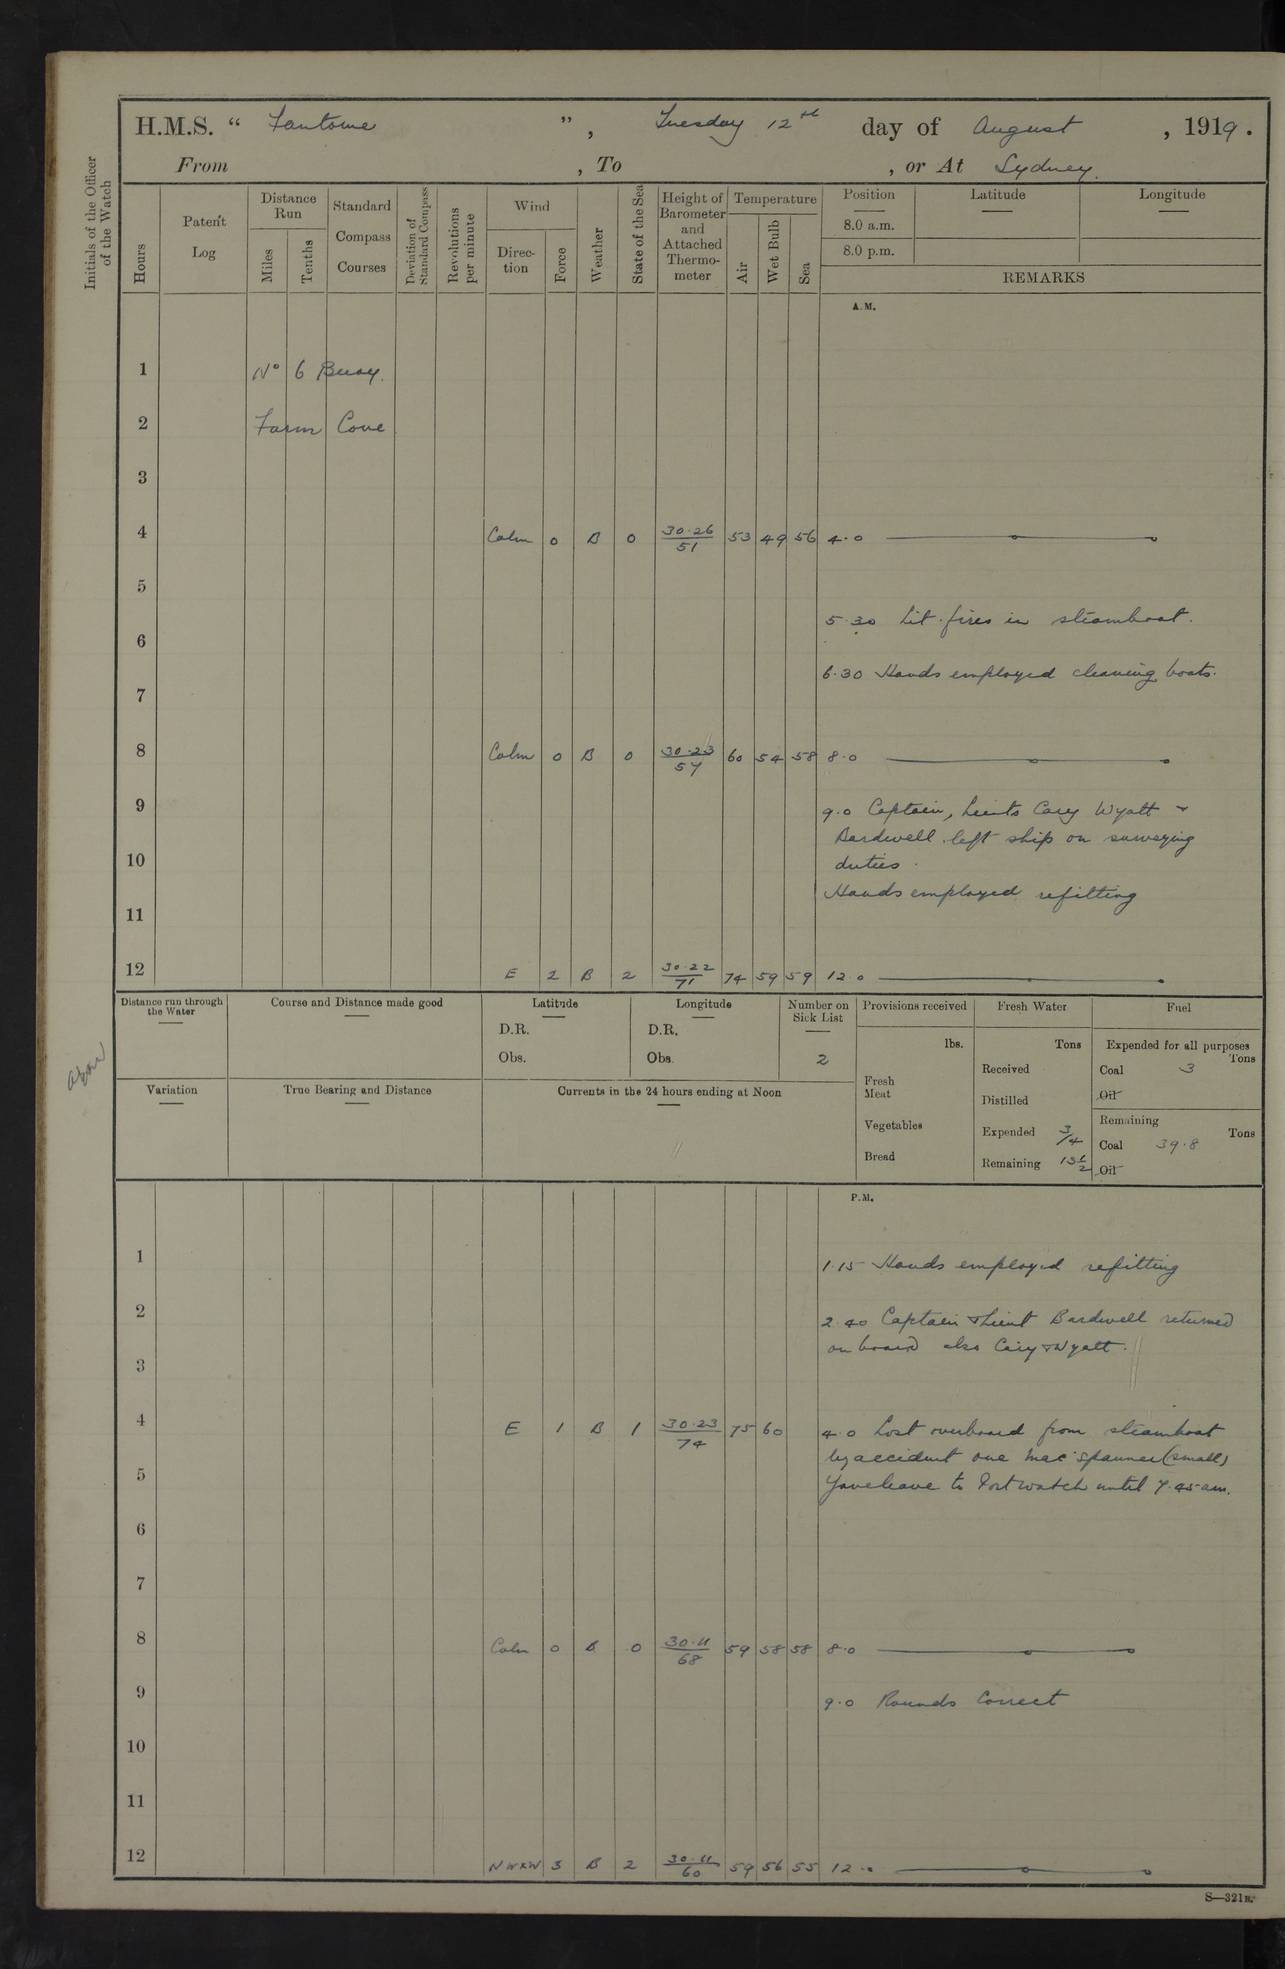 H.M.S. “ Fantome ”, Tuesday 12th day of August, 1919.
From , To , or At Sydney.
Initials of the Officer of the Watch
Hours
Patent Log
Distance Run
Miles
Tenths
Standard Compass Courses
Deviation of Standard Compass
Revolutions per minute
Wind
Direction
Force
Weather
State of the Sea
Height of Barometer and Attached Thermometer
Temperature
Air
Wet Bulb
Sea
Position
8.0 a.m.
8.0 p.m.
Latitude
Longitude
REMARKS
A.M.
1 No 6 Buoy.
2 Farm Cove
3
4 Calm 0 B 0 30.26 51 53 49 56 4.0
5
5.30 Lit fires in steamboat.
6
6.30 Hands employed cleaning boats.
7
8 Calm 0 B 0 30.23 57 60 54 58 8.0
9 9.0 Captain, Lieuts Cary Wyatt &
Bardwell left ship on surveying
10 duties.
Hands employed refitting
11
12 E 2 B 2 30.22 71 74 59 59 12.0
Distance run through the Water
Course and Distance made good
Latitude
D.R.
Obs.
Longitude
D.R.
Obs.
Number on Sick List
2
Provisions received
lbs.
Fresh Meat
Vegetables
Bread
Fresh Water
Tons
Received
Distilled
Expended 3/4
Remaining 13 1/2
Fuel
Expended for all purposes
Tons
Coal 3
Oil
Remaining
Tons
Coal 39.8
Oil
Variation
True Bearing and Distance
Currents in the 24 hours ending at Noon
P.M.
1 1.15 Hands employed refitting
2 2.40 Captain & Lieut Bardwell returned
on board also Cary & Wyatt.
3
4 E 1 B 1 30.23 74 75 60 4.0 Lost overboard from steamboat
by accident one spanner (small)
5 Gave leave to Port watch until 7.45 am.
6
7
8 Calm 0 B 0 30.11 68 59 58 58 8.0
9 9.0 Rounds Correct
10
11
12 NWxW 3 B 2 30.11 60 59 56 55 12.0
S—321B.